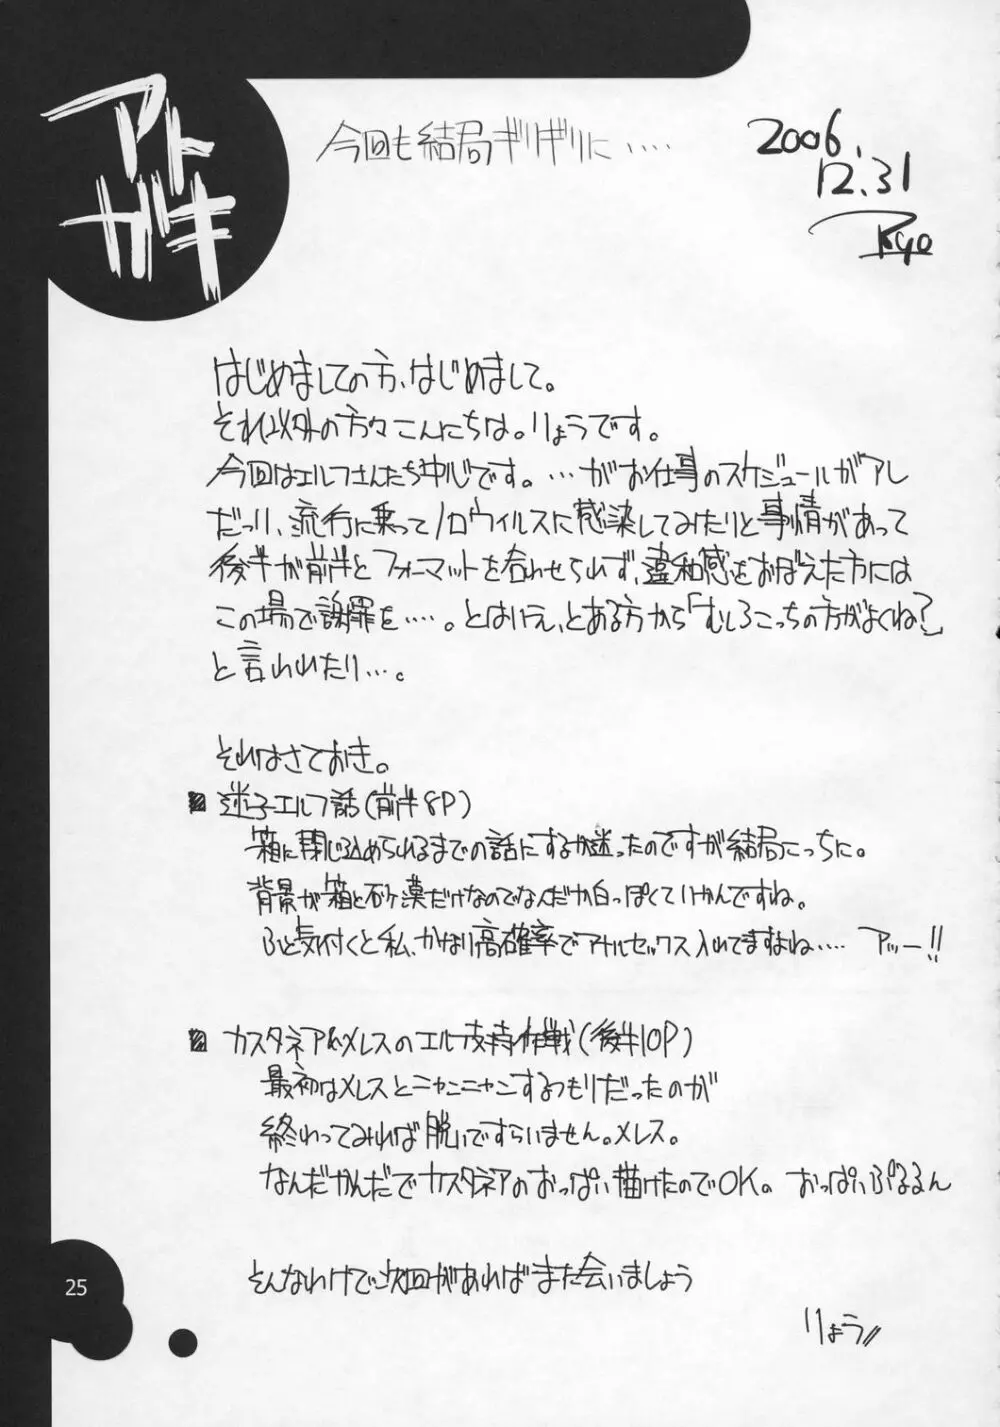 アト
ガキ
今回も結局ギリギリに・・・・
2006.
12.31
Ryo
はじめましての方、はじめまして。
それ以外の方々こんにちは。りょうです。
今回はエルフさんたち中心です。…がお仕事のスケジュールがアレ
だったり、流行に乗ってノロウィルスに感染してみたりと事情があって
後半が前半とフォーマットを合わせられず、違和感をおぼえた方には
この場で謝罪を・・・・。とはいえ、とある方から「むしろこっちの方がよくね?」
と言われたり…。
それはさておき。
■ 迷子エルフ話(前半8P)
箱に閉じ込められるまでの話にするか迷ったのですが結局こっちに。
背景が箱と砂漠だけなのでなんだか白っぽくていかんですね。
ふと気付くと私、かなり高確率でアナルセックス入れてますよね・・・・ アッー!!
■ カスタネア&メレスのエルフ支持作戦(後半10P)
最初はメレスとニャンニャンするつもりだったのが
終わってみれば脱いですらいません。メレス。
なんだかんだでカスタネアのおっぱい描けたのでOK。 おっぱいぷるるん
そんなわけで次回があればまた会いましょう
りょう//
25